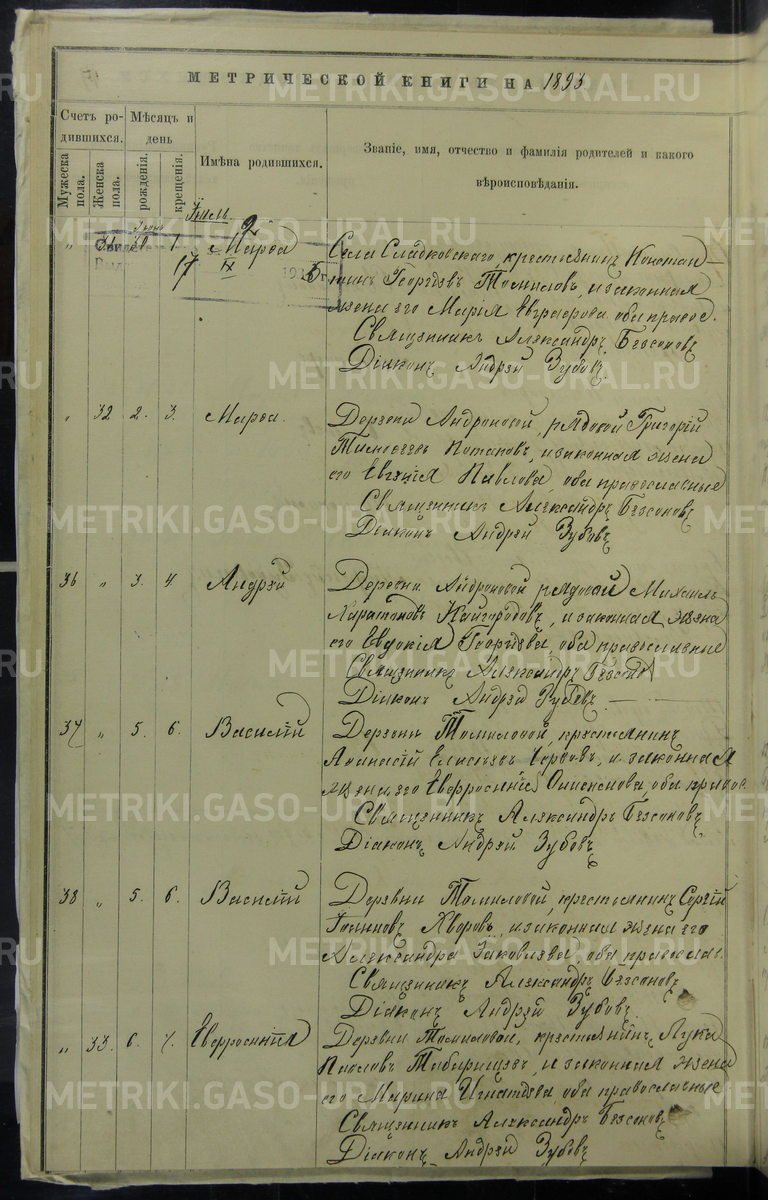 МЕТРИЧЕСКОЙ КНИГИ НА 1893
Счетъ ро-
дившихся.
Мѣсяцъ и
день
Имена родившихся.
Званіе, имя, отчество и фамилія родителей и какого
вѣроисповѣданія.
Мужеска
пола.
Женска
пола.
рожденія.
крещенія.
Іюнь
Іюль
2
" 31 30 1. Марѳа Села Сладковскаго крестьянинъ Констан-
17 IX тинъ Георгіевъ Томиловъ, и законная
жена его Марія Евграфова оба правос.
Священникъ Александръ Безсоновъ
Діаконъ Андрей Зубовъ
" 32 2. 3. Марѳа. Деревни Андроновой, рядовой Григорій
Тимоѳеевъ Потаповъ, и законная жена
его Евгенія Павлова, оба православные
Священникъ Александръ Безсоновъ
Діаконъ Андрей Зубовъ
36 " 3. 4. Андрей Деревни Андроновой рядовой Михаилъ
Харитоновъ Кайгородовъ, и законная жена
его Евдокія Георгіева, оба православные
Священникъ Александръ Безсоновъ
Діаконъ Андрей Зубовъ.
37 " 5. 6. Василій Деревни Томиловой, крестьянинъ
Аѳанасій Елисѣевъ, и законная
жена его Евфросинія оба правос
Священникъ Александръ Безсоновъ
Діаконъ Андрей Зубовъ
38 " 5. 6. Василій Деревни Томиловой, крестьянинъ Сергій
Хворовъ, и законная жена его
Александра Іаковлева, оба правосла.
Священникъ Александръ Безсоновъ
Діаконъ Андрей Зубовъ
" 33. 6. 7. Евфросинія Деревни Томиловой, крестьянинъ Лука
Павловъ Табаринцевъ, и законная жена
его Марина Игнатьева, оба православные
Священникъ Александръ Безсоновъ
Діаконъ Андрей Зубовъ
METRIKI.GASO-URAL.RU